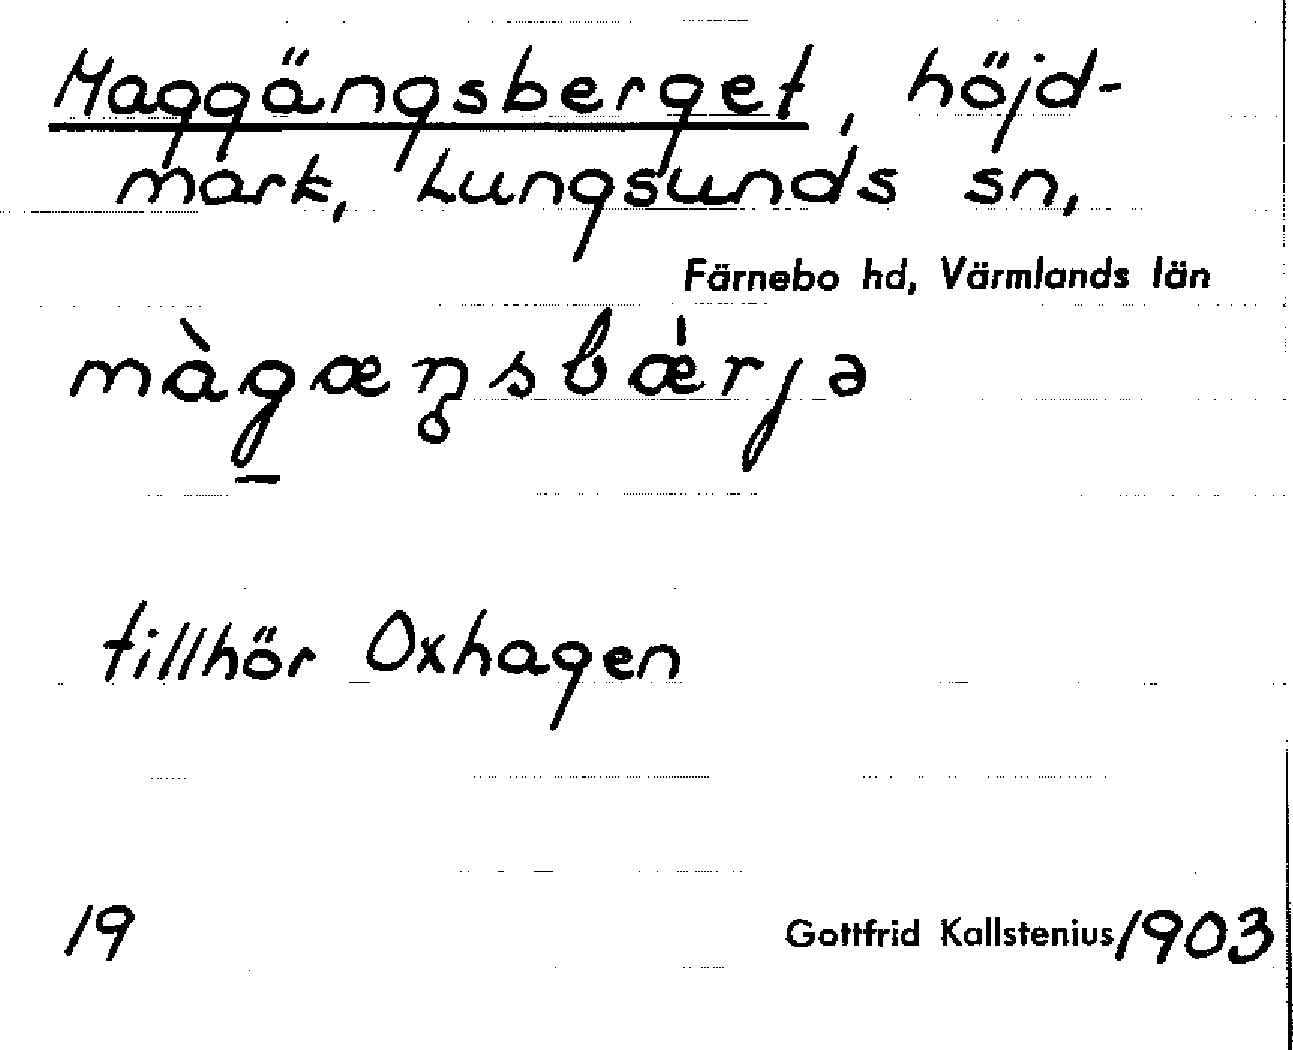 Maggängsberget, höjd-
mark, Lungsunds sn,
Färnebo hd, Värmlands län
màgæŋsbǽrjə
tillhör Oxhagen
19
Gottfrid Kallstenius 1903